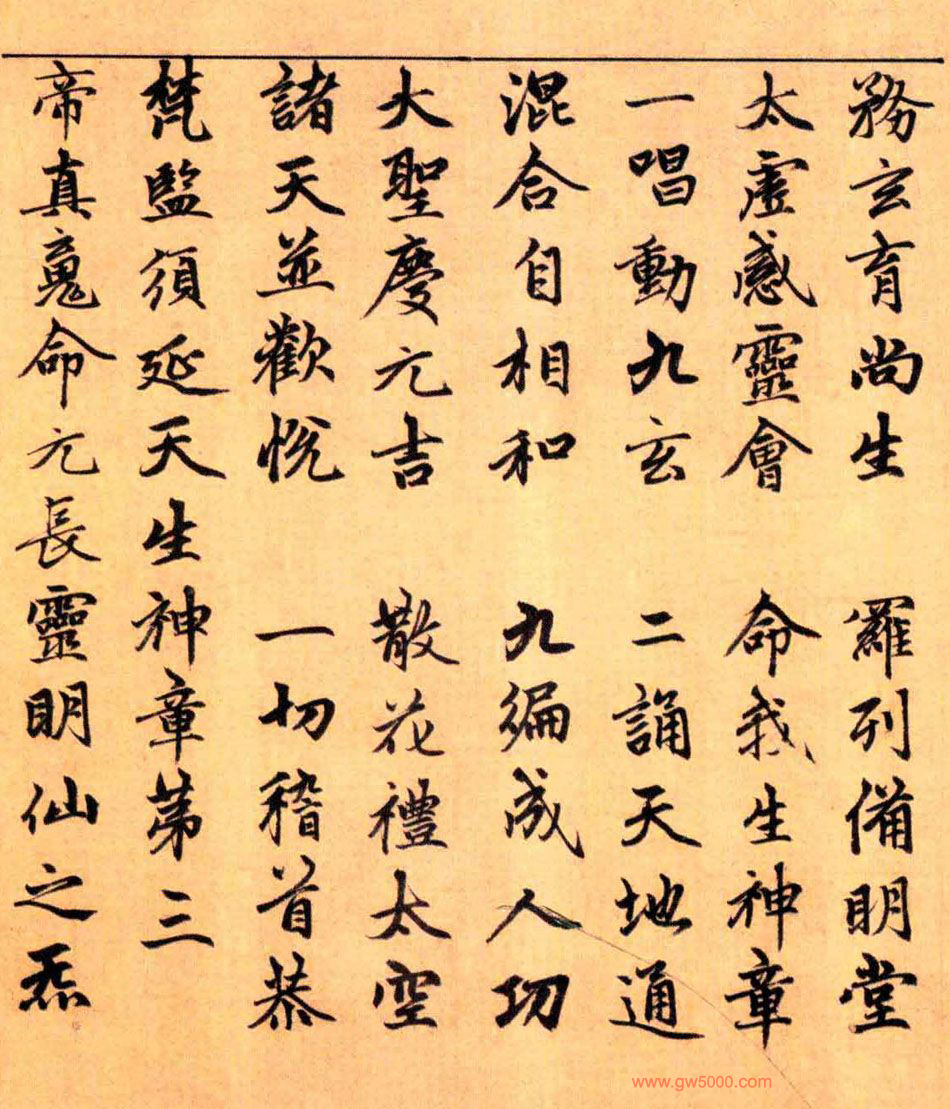 務玄育尚生 羅列備明堂
太虛感靈會 命我生神章
一唱動九玄 二誦天地通
混合自相和 九編成人功
大聖慶元吉 散花禮太空
諸天並歡悅 一切稽首恭
梵監須延天生神章第三
帝真䰟命元長靈明仙之炁
www.gw5000.com